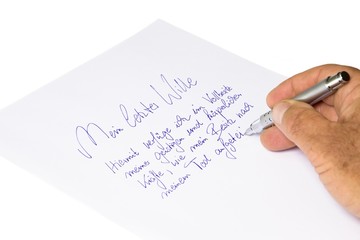 Mein letzter Wille
Hiermit verfüge ich im Vollbesitz
meiner geistigen und körperlichen
Kräfte, wie mein Erbe nach
meinem Tod aufgetei